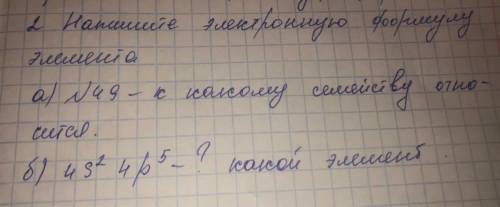 2 Напишите электронную формулу
элемента
а) N49 - к какому семейству отно-
сится.
б) 4s² 4p⁵ - ? какой элемент.